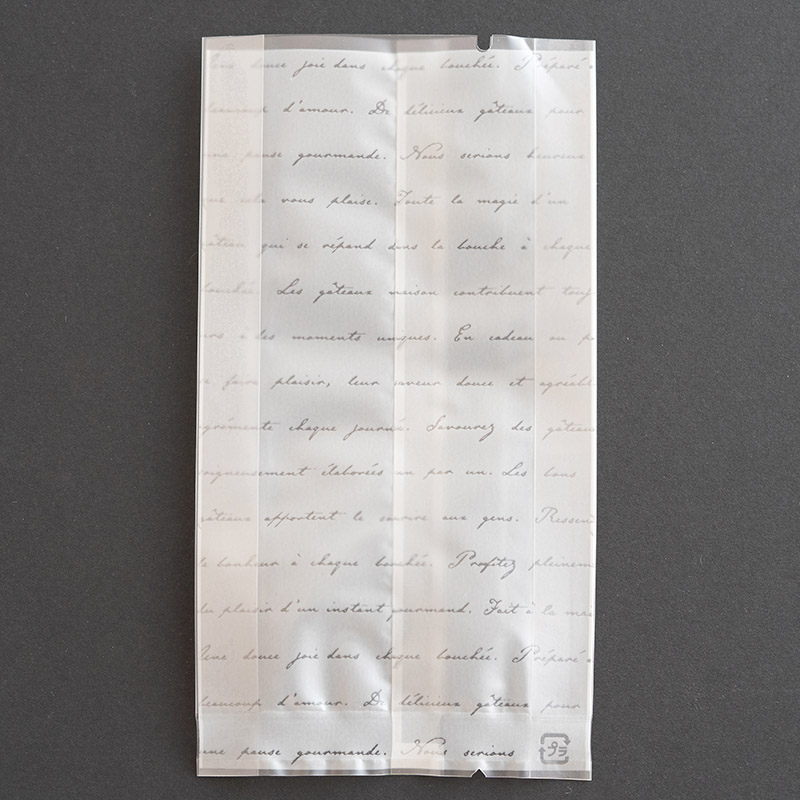 Une douce joie dans chaque bouchée. Préparé a
beaucoup d'amour. De délicieux gâteaux pour
une pause gourmande. Nous serions heureux
que cela vous plaise. Toute la magie d'un
gâteau qui se répand dans la bouche à chaque
bouchée. Les gâteaux maison contribuent touj
urs à des moments uniques. En cadeau ou p
r faire plaisir, leur saveur douce et agréabl
agrémente chaque journé. Savourez des gâteau
soigneusement élaborées un par un. Les bons
gâteaux apportent le sourire aux gens. Ressen
le bonheur à chaque bouchée. Profitez pleinem
du plaisir d'un instant gourmand. Fait à la mai
Une douce joie dans chaque bouchée. Préparé a
beaucoup d'amour. De délicieux gâteaux pour
une pause gourmande. Nous serions
プラ